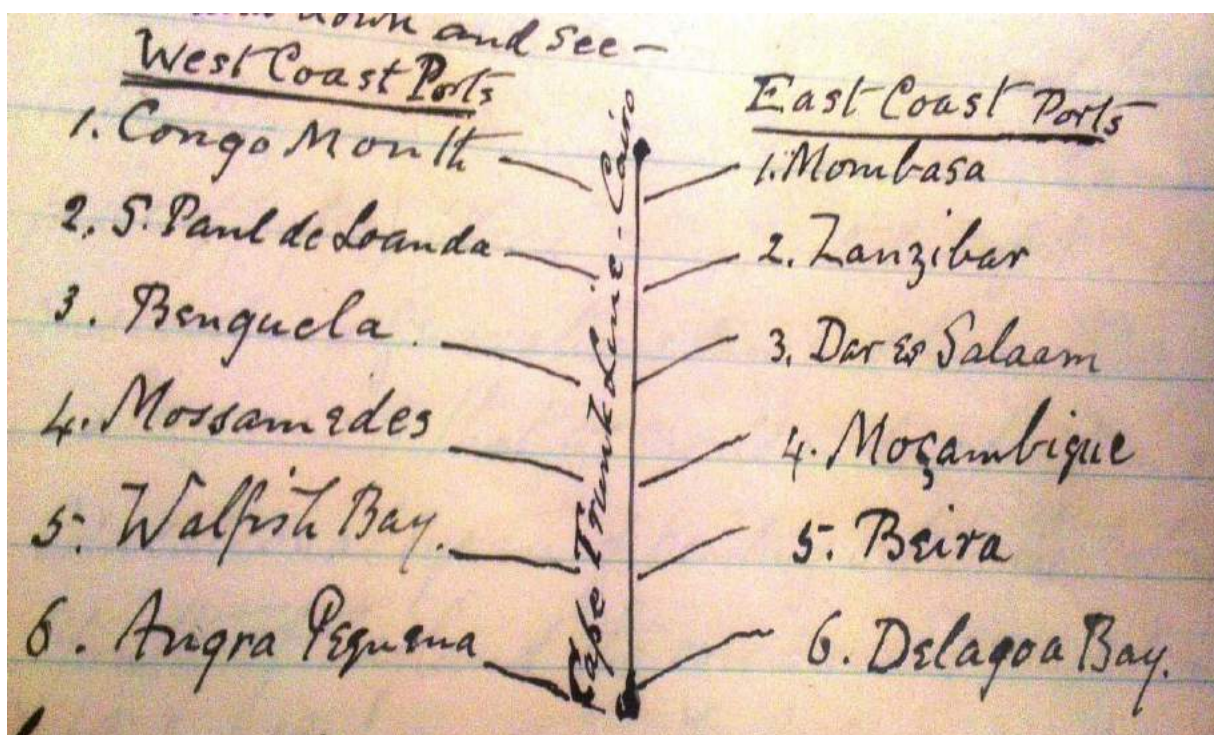 down and see –
West Coast Ports
1. Congo Mouth
2. S. Paul de Loanda
3. Benguela.
4. Mossamedes
5. Walfish Bay.
6. Angra Pequena
Cape Trunk Line - Cairo
East Coast Ports
1. Mombasa
2. Zanzibar
3. Dar es Salaam
4. Moçambique
5. Beira
6. Delagoa Bay.